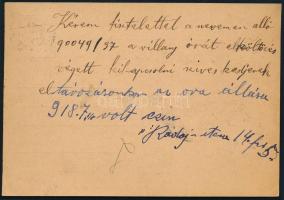 Kérem tisztelettel a nevemen álló
90049/37 a villany órát elköltözés
végett kikapcsolni szíveskedjenek
eltávozásomkor az óra állása
918.7 volt
Ráday utca 14. fsz 5.